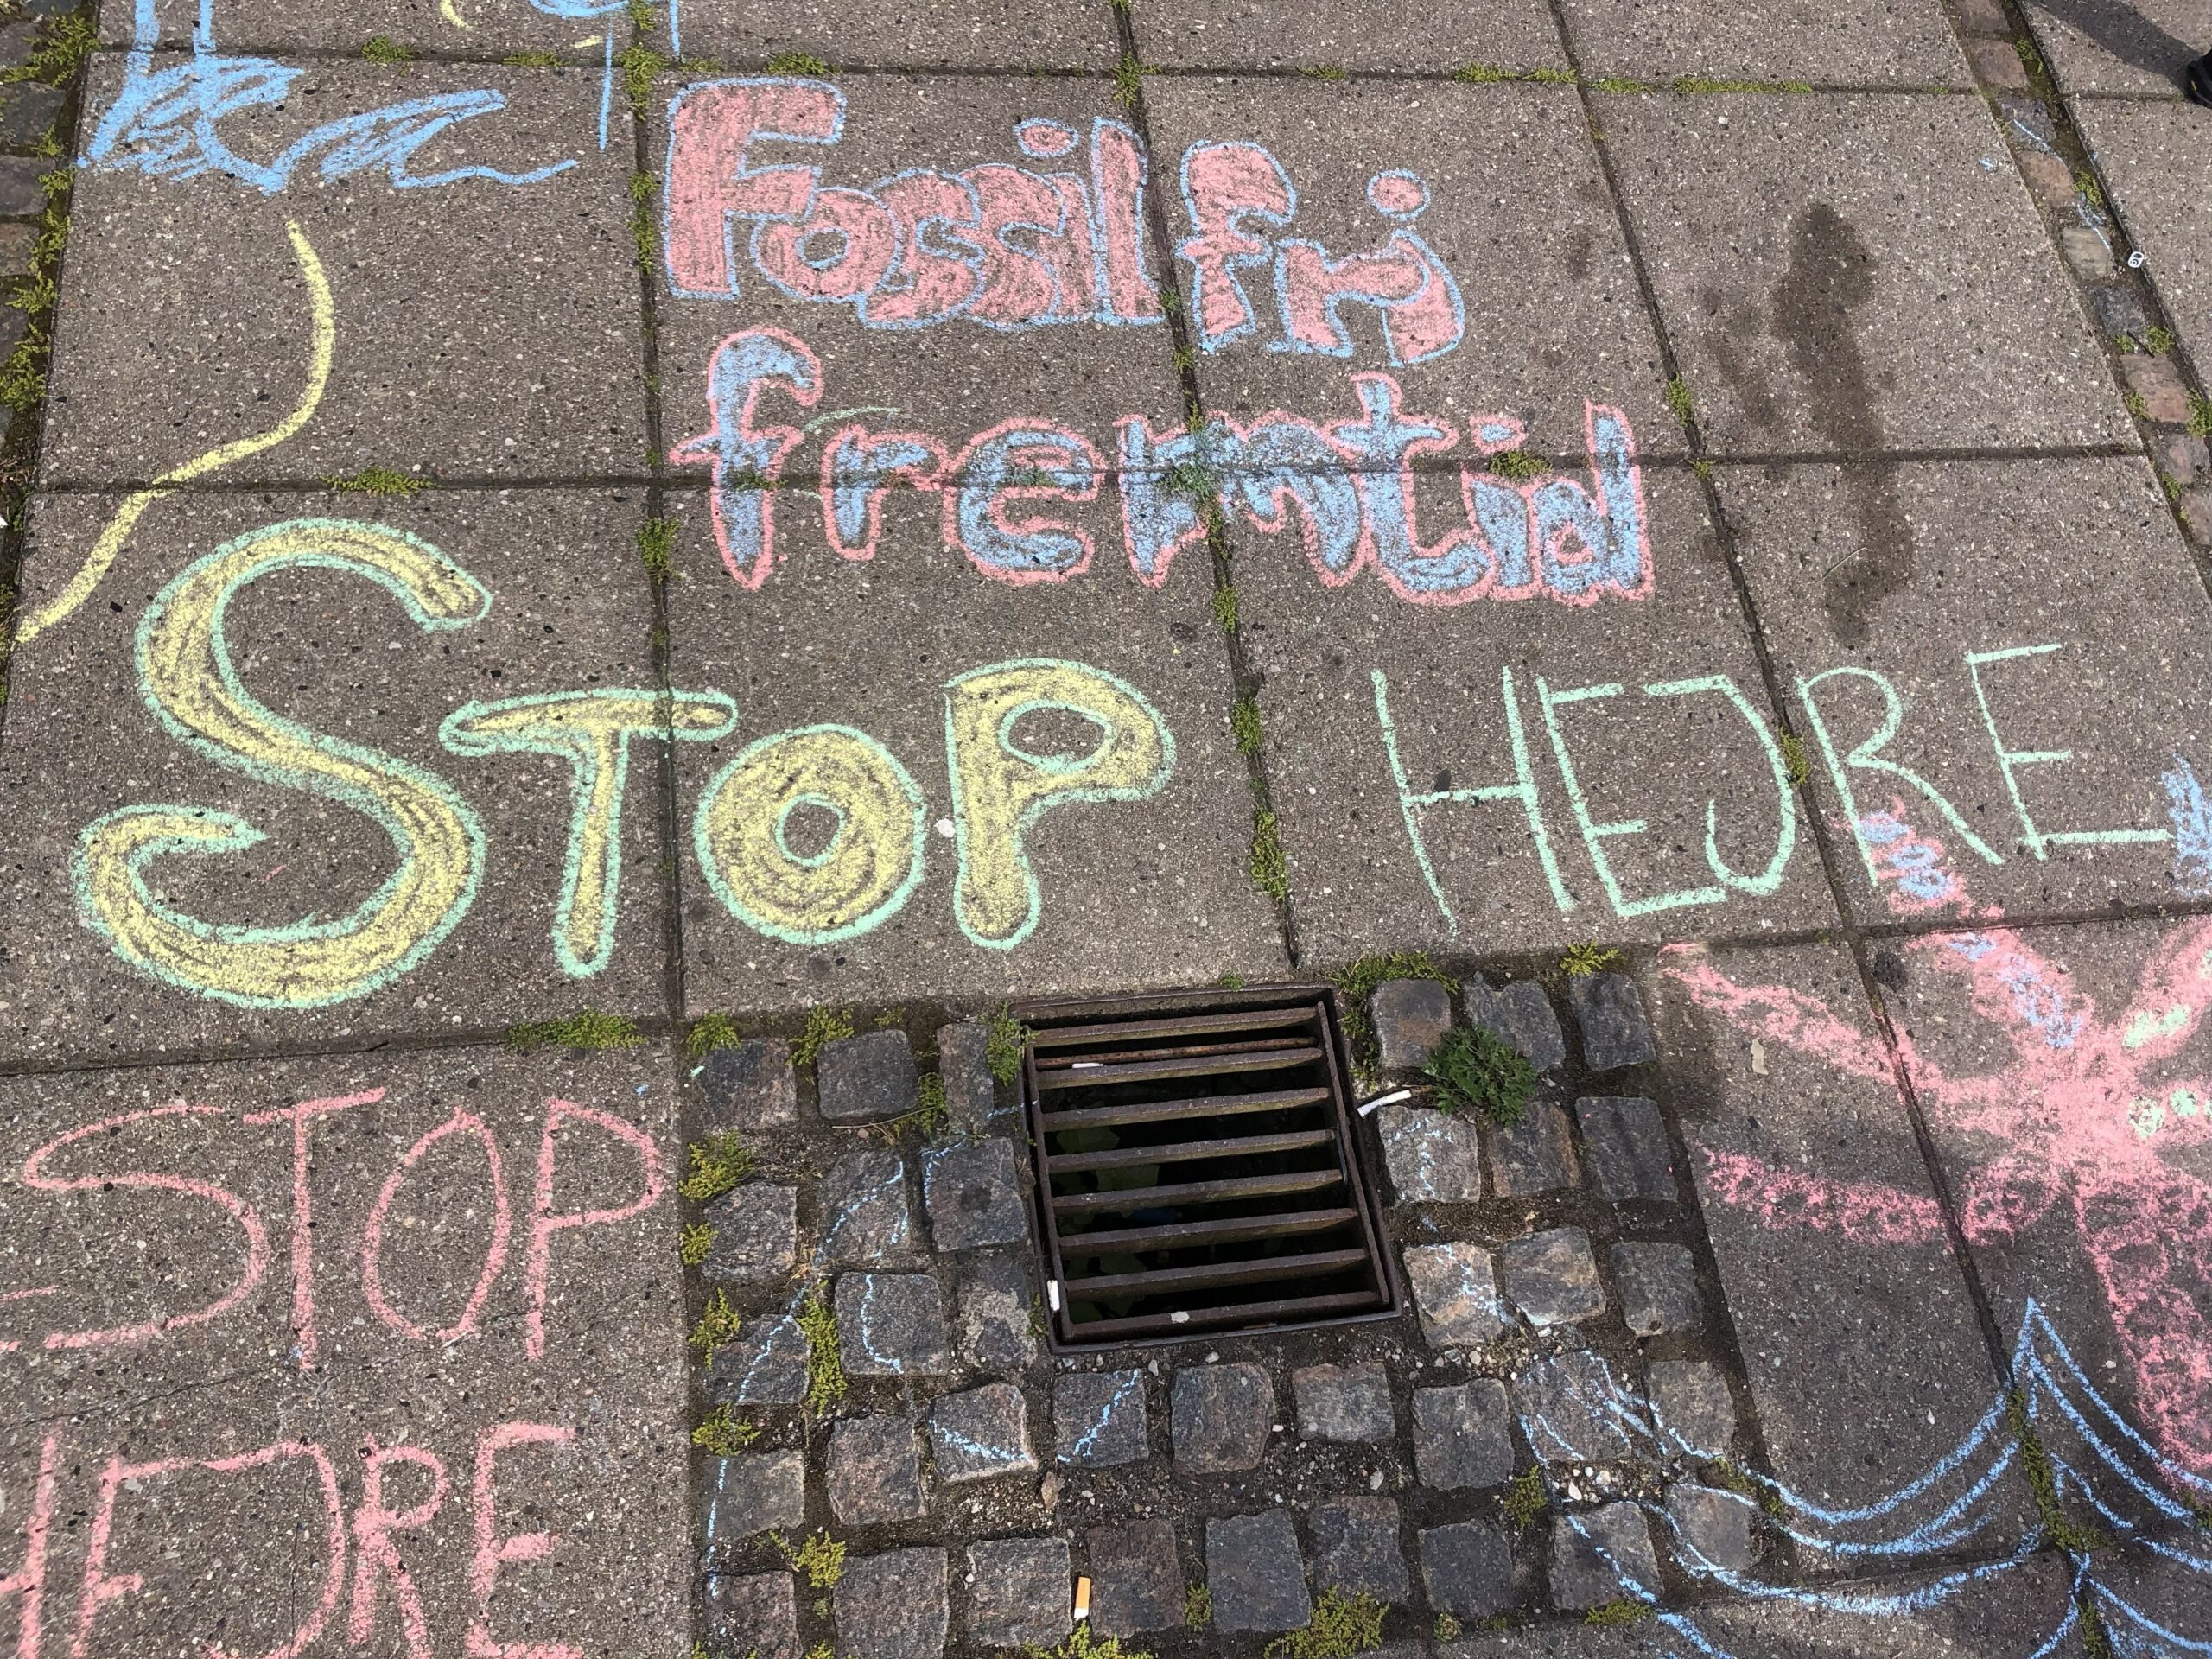 Fossil frj
fremtid
STOP HEJRE
STOP
HEJRE